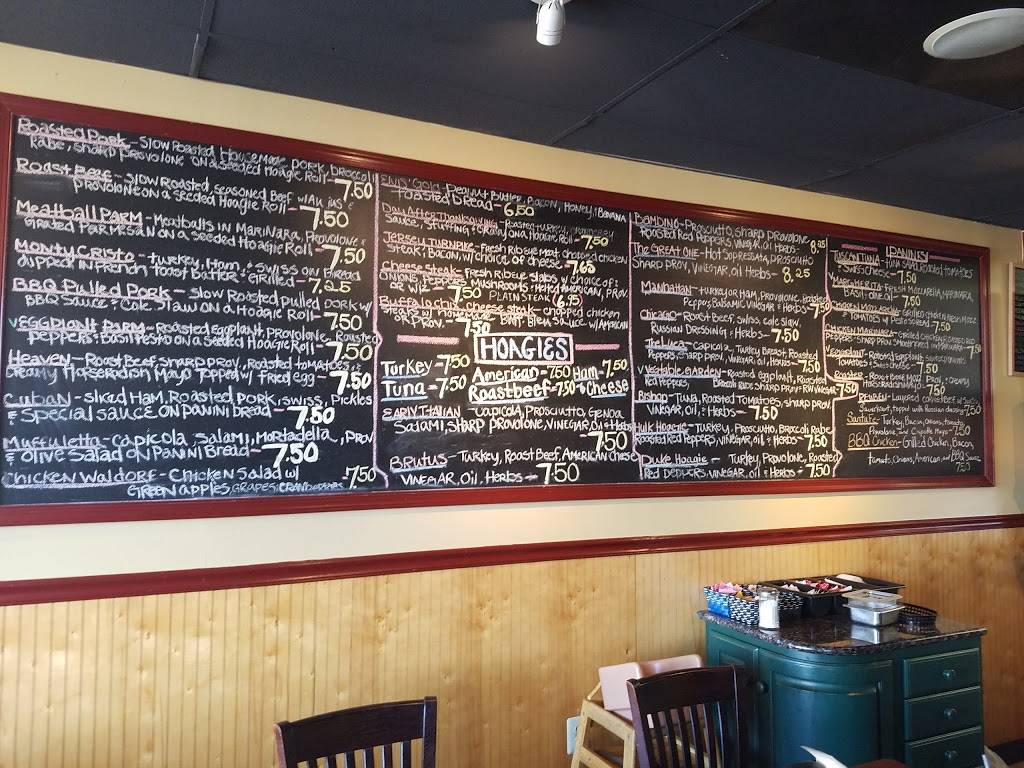 Roasted Pork - Slow Roasted Housemade Pork, Broccoli
Rabe, sharp provolone on a seeded Hoagie Roll - 7.50
Roast Beef - Slow Roasted, seasoned Beef w/ Au jus &
provolone on a seeded Hoagie Roll - 7.50
Meatball Parm - Meatballs in Marinara, Provolone &
Grated Parmesan on a seeded Hoagie Roll - 7.50
Monty Cristo - Turkey, Ham & Swiss on Bread
dipped in French Toast Batter & Grilled - 7.25
BBQ Pulled Pork - Slow Roasted pulled pork w/
BBQ Sauce & Cole Slaw on a Hoagie Roll - 7.50
V Eggplant Parm - Roasted Eggplant, Provolone, Roasted
peppers & Basil Pesto on a seeded Hoagie Roll - 7.50
Heaven - Roast Beef, sharp prov, Roasted tomatoes &
Creamy Horseradish Mayo topped w/ fried egg - 7.50
Cuban - sliced Ham, Roasted pork, swiss, Pickles
& special sauce on panini bread - 7.50
Muffuletta - capicola, salami, Mortadella, prov
& olive salad on panini Bread - 7.50
Chicken Waldorf - Chicken Salad w/
Green apples, grapes, cranberries - 7.50
Elvis' Gold - Peanut Butter, Bacon, Honey & Banana
Toasted bread - 6.50
Day After Thanksgiving - Roasted Turkey,
Sauce, Stuffing & on a Hoagie Roll - 7.50
Jersey Turnpike - Fresh Ribeye Meat chopped chicken
Steak, Bacon, w/ choice of cheese - 7.65
Cheese steak - fresh Ribeye slabs w/ choice of:
onions, mushrooms & Hotted American, Prov.
or wiz - 7.50 Plain steak (6.95)
Buffalo chic steak - chopped chicken
steak w/ homemade Buff. Blew sauce w/ American
& Prov. - 7.50
HOAGIES
Turkey - 7.50 American - 7.50 Ham - 7.50
Tuna - 7.50 Roast beef - 7.50 & Cheese
Early Italian - Capicola, Prosciutto, Genoa
Salami, sharp provolone, vinegar, oil & Herbs - 7.50
Brutus - Turkey, Roast Beef, American Cheese
vinegar, oil, Herbs - 7.50
Bambino - Prosciutto, sharp provolone
Roasted Red Peppers, vinegar, oil & Herbs - 8.25
The Great One - Hot Sopressata, Prosciutto
Sharp prov, vinegar, oil Herbs - 8.25
Manhattan - Turkey or Ham, Provolone, Roasted
Peppers, Balsamic Vinegar & Herbs - 7.50
Chicago - Roast Beef, swiss, cole slaw,
Russian Dressing & Herbs - 7.50
The Luca - Capicola, Turkey Breast, Roasted
Peppers, sharp prov, vinegar, oil & Herbs - 7.50
V Vegetable Garden - Roasted Eggplant, Roasted
Red Peppers, Broccoli Rabe, sharp prov, R/W Vinegar - 7.50
Bishop - Tuna, Roasted Tomatoes, sharp prov
vinegar, oil & Herbs - 7.50
Hulk Hoagie - Turkey, Prosciutto, Broccoli Rabe
Roasted Red Peppers, vinegar, oil & Herbs - 7.50
Duke Hoagie - Turkey, Provolone, Roasted
Red Peppers, vinegar, oil & Herbs - 7.50
Tuscan Tuna - Tuna Salad, Roasted tomatoes
& Swiss Cheese - 7.50
Margherita - Fresh Mozzarella, Marinara,
Basil & olive oil - 7.50
tomatoes w/ Pesto spread - 7.50
Chicken Marinara
7.50
Roasted Eggplant
7.50
Prov, & Creamy
Horseradish 7.50
Reuben - Layered corned beef w/ Swiss
Sauerkraut, topped with Russian dressing 7.50
Santa Fe - Turkey, Bacon, Onions, tomato,
Provolone and Chipotle Mayo - 7.50
BBQ Chicken - Grilled Chicken, Bacon,
tomato, Onions, American, and BBQ Sauce
7.50